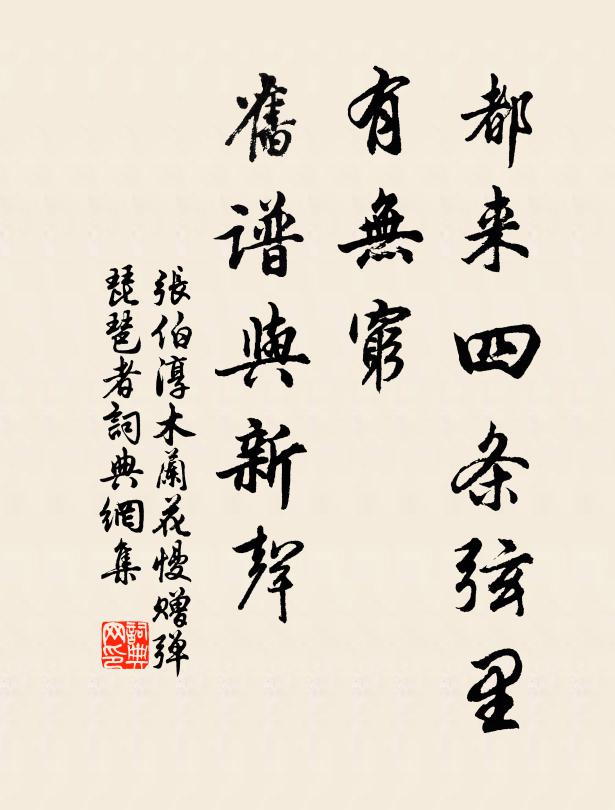 都来四条弦里
有無窮
舊譜與新聲
張伯淳木蘭花慢赠弹
琵琶者詞典網集
詞典网印